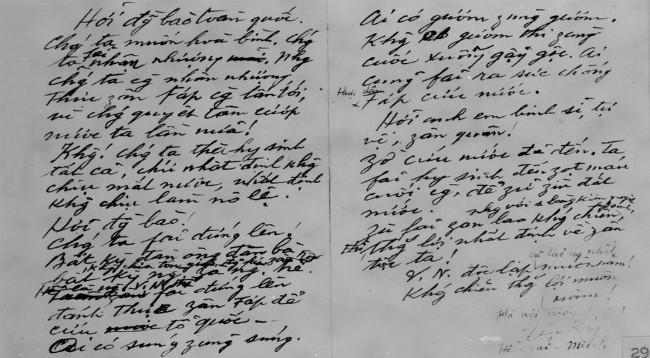 Hỡi đg̀ bào toàn quốc.
Chg' ta muốn hoà bình, chg'
ta fải nhân nhượng. Nhg
chg' ta cg̀ nhân nhượng,
thực zân Fáp cg̀ lấn tới,
vì chg' quyết tâm cướp
nước ta lần nữa!
Khg! chg' ta thà hy sinh
tất cả, chứ nhất định khg
chịu mất nước, nhất định
khg chịu làm nô lệ.
Hỡi đg̀ bào!
Chg' ta fải đứng lên!
Bất kỳ đàn ông, đàn bà,
bất kỳ ng già, ng trẻ,
fải đứng lên
đánh thực zân Fáp để
cứu tổ quốc –
Ai có súng zùng súng.
Ai có gươm zùng gươm.
Khg có gươm thì zùng
cuốc xuổng gậy gộc. Ai
cũng fải ra sức chống
thực zân Fáp cứu nước.
Hỡi anh em binh sĩ, tự
vệ, zân quân!
Zờ cứu nước đã đến. Ta
fải hy sinh đến zọt máu
cuối cg̀, để zữ zìn đất
nước.
Zù fải gian lao khg' chiến,
thg' lợi nhất định về zân
tộc ta!
V.N. độc lập và thống nhất muôn năm!
Khg' chiến thg' lợi muôn
năm!
Hà nội
29